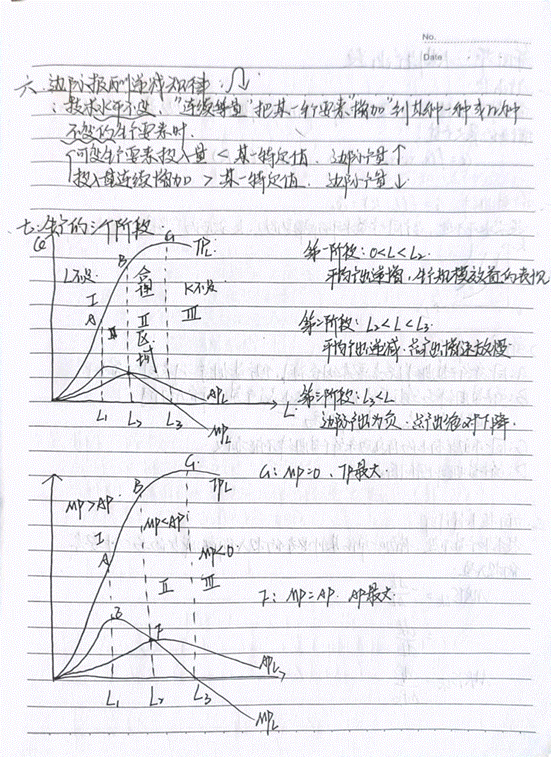 No.
Date
六.边际报酬递减规律:
:技术水平不变,"连续等量"把某一生产要素"增加"到其他一种或几种
不变的生产要素时.
可变生产要素投入量 < 某一特定值. 边际产量↑
投入量连续增加 > 某一特定值. 边际产量↓
七.生产的三个阶段
Q
G
TPL
B
L不足
合理
区域
K不足
I
II
III
A
L1
L2
L3
L
APL
MPL
第一阶段:0<L<L2.
平均产出递增,生产规模效益的表现
第二阶段:L2<L<L3.
平均产出递减,总产出增速放慢
第三阶段:L3<L
边际产出为负,总产出绝对下降.
G: MP=0, TP最大
F: MP=AP. AP最大
G
TPL
B
MP>AP
MP<AP
MP<0
I
A
II
III
F
L1
L2
L3
APL
MPL